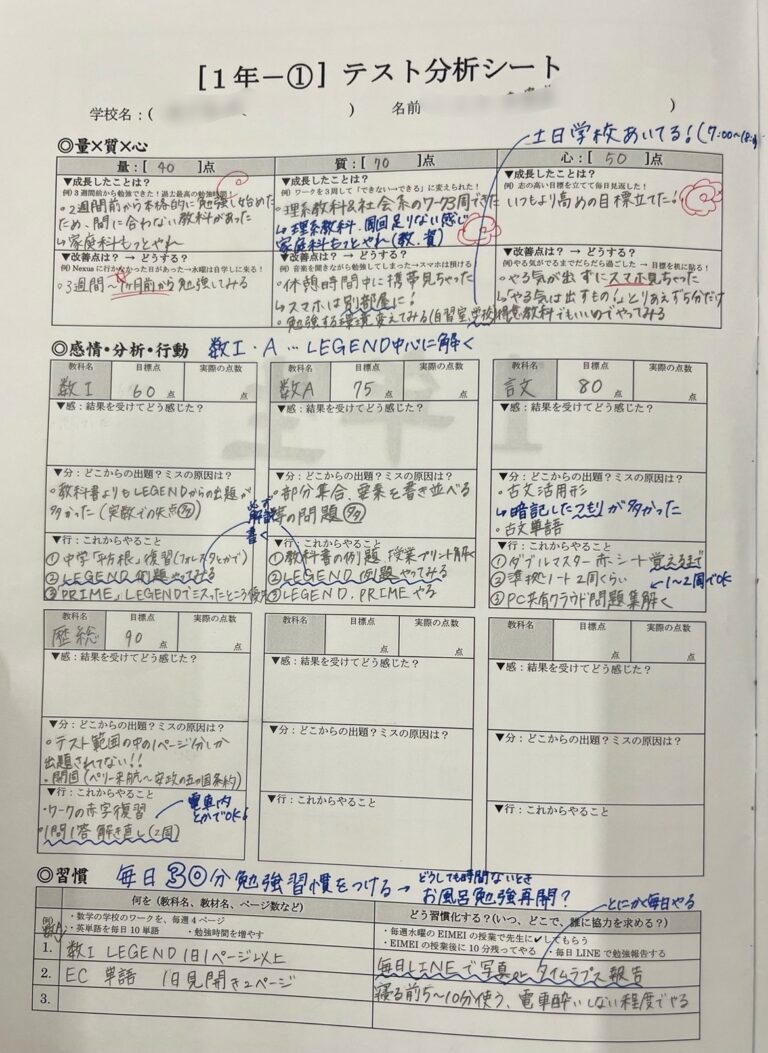 [1年-①] テスト分析シート
学校名：( ) 名前 )
土日学校あいてる！(7:00〜18:
◎量×質×心
量：[ 40 ]点
▼成長したことは？
例) 3週間前から勉強できた！過去最高の勉強時間！
・2週間前から本格的に勉強し始めた
ため、間に合わない教科があった
↳家庭科もっとやれ
▼改善点は？ → どうする？
例) Nexusに行かなかった日があった→水曜は自学しに来る！
・3週間〜1ヶ月前から勉強してみる
質：[ 70 ]点
▼成長したことは？
例) ワークを3周して「できない→できる」に変えられた！
・理系教科&社会系のワーク3周できた
↳理系教科、周回足りない感じ
家庭科もっとやれ(教、資)
▼改善点は？ → どうする？
例) 音楽を聞きながら勉強してしまった→スマホは預ける
・休憩時間中に携帯見ちゃった
↳スマホは別部屋に！
・勉強する環境変えてみる(自習室、学校)
心：[ 50 ]点
▼成長したことは？
例) 志の高い目標を立てて毎日見返した！
いつもより高めの目標立てた！
▼改善点は？ → どうする？
例) やる気がでるまでだらだら過ごした → 目標を机に貼る！
・やる気が出ずにスマホ見ちゃった
↳「やる気は出すもの！」とりあえず5分だけ
得意教科でもいいのでやってみる
◎感情・分析・行動 数Ⅰ・A … LEGEND中心に解く
教科名 目標点 実際の点数
数Ⅰ 60 点 点
▼感：結果を受けてどう感じた？
▼分：どこからの出題？ミスの原因は？
・教科書よりもLEGENDからの出題が
多かった(実数での失点多)
▼行：これからやること
①中学「平方根」復習(フォレスタとかで)
②LEGEND 例題やってみる
③PRIME、LEGENDでミスったところ復習
必ず
解説
書く
教科名 目標点 実際の点数
数A 75 点 点
▼感：結果を受けてどう感じた？
▼分：どこからの出題？ミスの原因は？
・部分集合、要素を書き並べる
等の問題 多
▼行：これからやること
①教科書の例題、授業プリント解く
②LEGEND 例題やってみる
③LEGEND、PRIMEやる
教科名 目標点 実際の点数
言文 80 点 点
▼感：結果を受けてどう感じた？
▼分：どこからの出題？ミスの原因は？
・古文活用形
↳暗記したつもりが多かった
・古文単語
▼行：これからやること
①ダブルマスター赤シート覚えるまで
②準拠ノート2周くらい ←1〜2周でOK
③PC共有クラウド問題集解く
教科名 目標点 実際の点数
歴総 90 点 点
▼感：結果を受けてどう感じた？
▼分：どこからの出題？ミスの原因は？
・テスト範囲の中の1ページ分しか
出題されてない！！
・開国(ペリー来航〜安政の五か国条約)
▼行：これからやること
・ワークの赤字復習
・1問1答 解き直し(2周)
電車内
とかでOK！
教科名 目標点 実際の点数
点 点
▼感：結果を受けてどう感じた？
▼分：どこからの出題？ミスの原因は？
▼行：これからやること
教科名 目標点 実際の点数
点 点
▼感：結果を受けてどう感じた？
▼分：どこからの出題？ミスの原因は？
▼行：これからやること
◎習慣 毎日30分勉強習慣をつける → どうしても時間ないとき
お風呂勉強再開？
とにかく毎日やる
何を (教科名、教材名、ページ数など)
どう習慣化する？(いつ、どこで、誰に協力を求める？)
例)
・数学の学校のワークを、毎週4ページ
・英単語を毎日10単語 ・勉強時間を増やす
・毎週水曜のEIMEIの授業で先生に✔してもらう
・EIMEIの授業後に10分残ってやる ・毎日LINEで勉強報告する
1. 数Ⅰ LEGEND 1日1ページ以上
毎日LINEで写真or タイムラプス報告
2. EC 単語 1日見開き2ページ
寝る前5〜10分使う、電車酔いしない程度でやる
3.